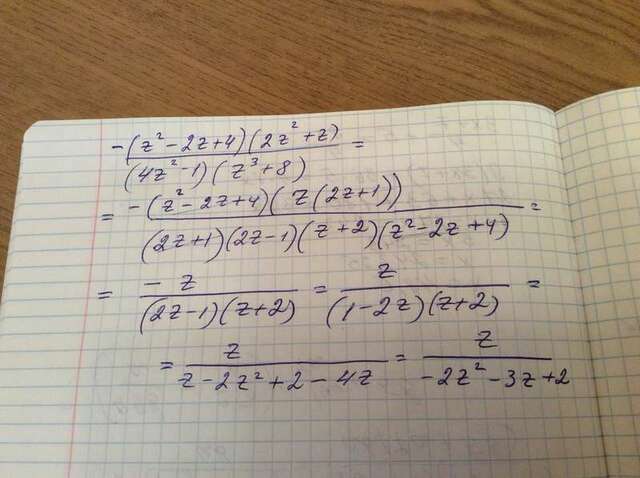 -(z²-2z+4)(2z²+z) / (4z²-1)(z³+8) =
= -(z²-2z+4)(z(2z+1)) / (2z+1)(2z-1)(z+2)(z²-2z+4) =
= -z / (2z-1)(z+2) = z / (1-2z)(z+2) =
= z / z-2z²+2-4z = z / -2z²-3z+2